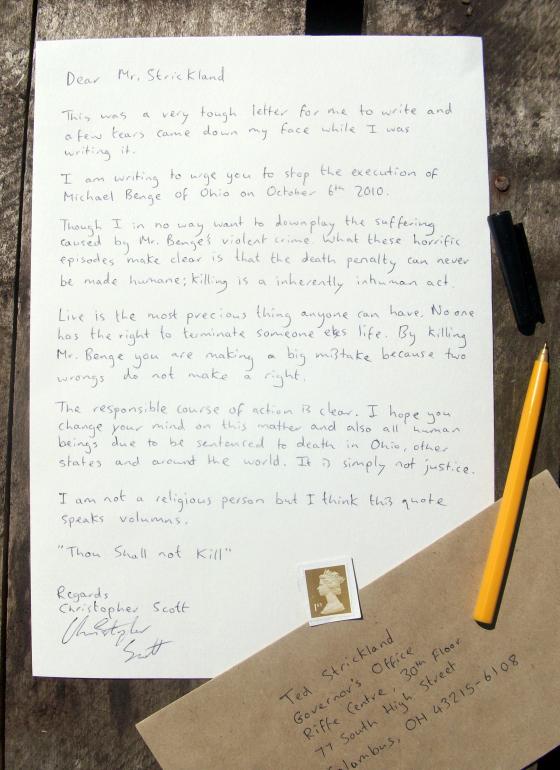 Dear Mr. Strickland
This was a very tough letter for me to write and
a few tears came down my face while I was
writing it.
I am writing to urge you to stop the execution of
Michael Benge of Ohio on October 6th 2010.
Though I in no way want to downplay the suffering
caused by Mr. Benge's violent crime. What these horrific
episodes make clear is that the death penalty can never
be made humane; killing is a inherently inhuman act.
Live is the most precious thing anyone can have. No one
has the right to terminate someone elses life. By killing
Mr. Benge you are making a big mistake because two
wrongs do not make a right.
The responsible course of action is clear. I hope you
change your mind on this matter and also all human
beings due to be sentenced to death in Ohio, other
states and around the world. It is simply not justice.
I am not a religious person but I think this quote
speaks volumns.
"Thou Shall not Kill"
Regards
Christopher Scott
Christopher
Scott
1st
Ted Strickland
Governor's Office
Riffe Centre, 30th Floor
77 South High Street
Columbus, OH 43215-6108